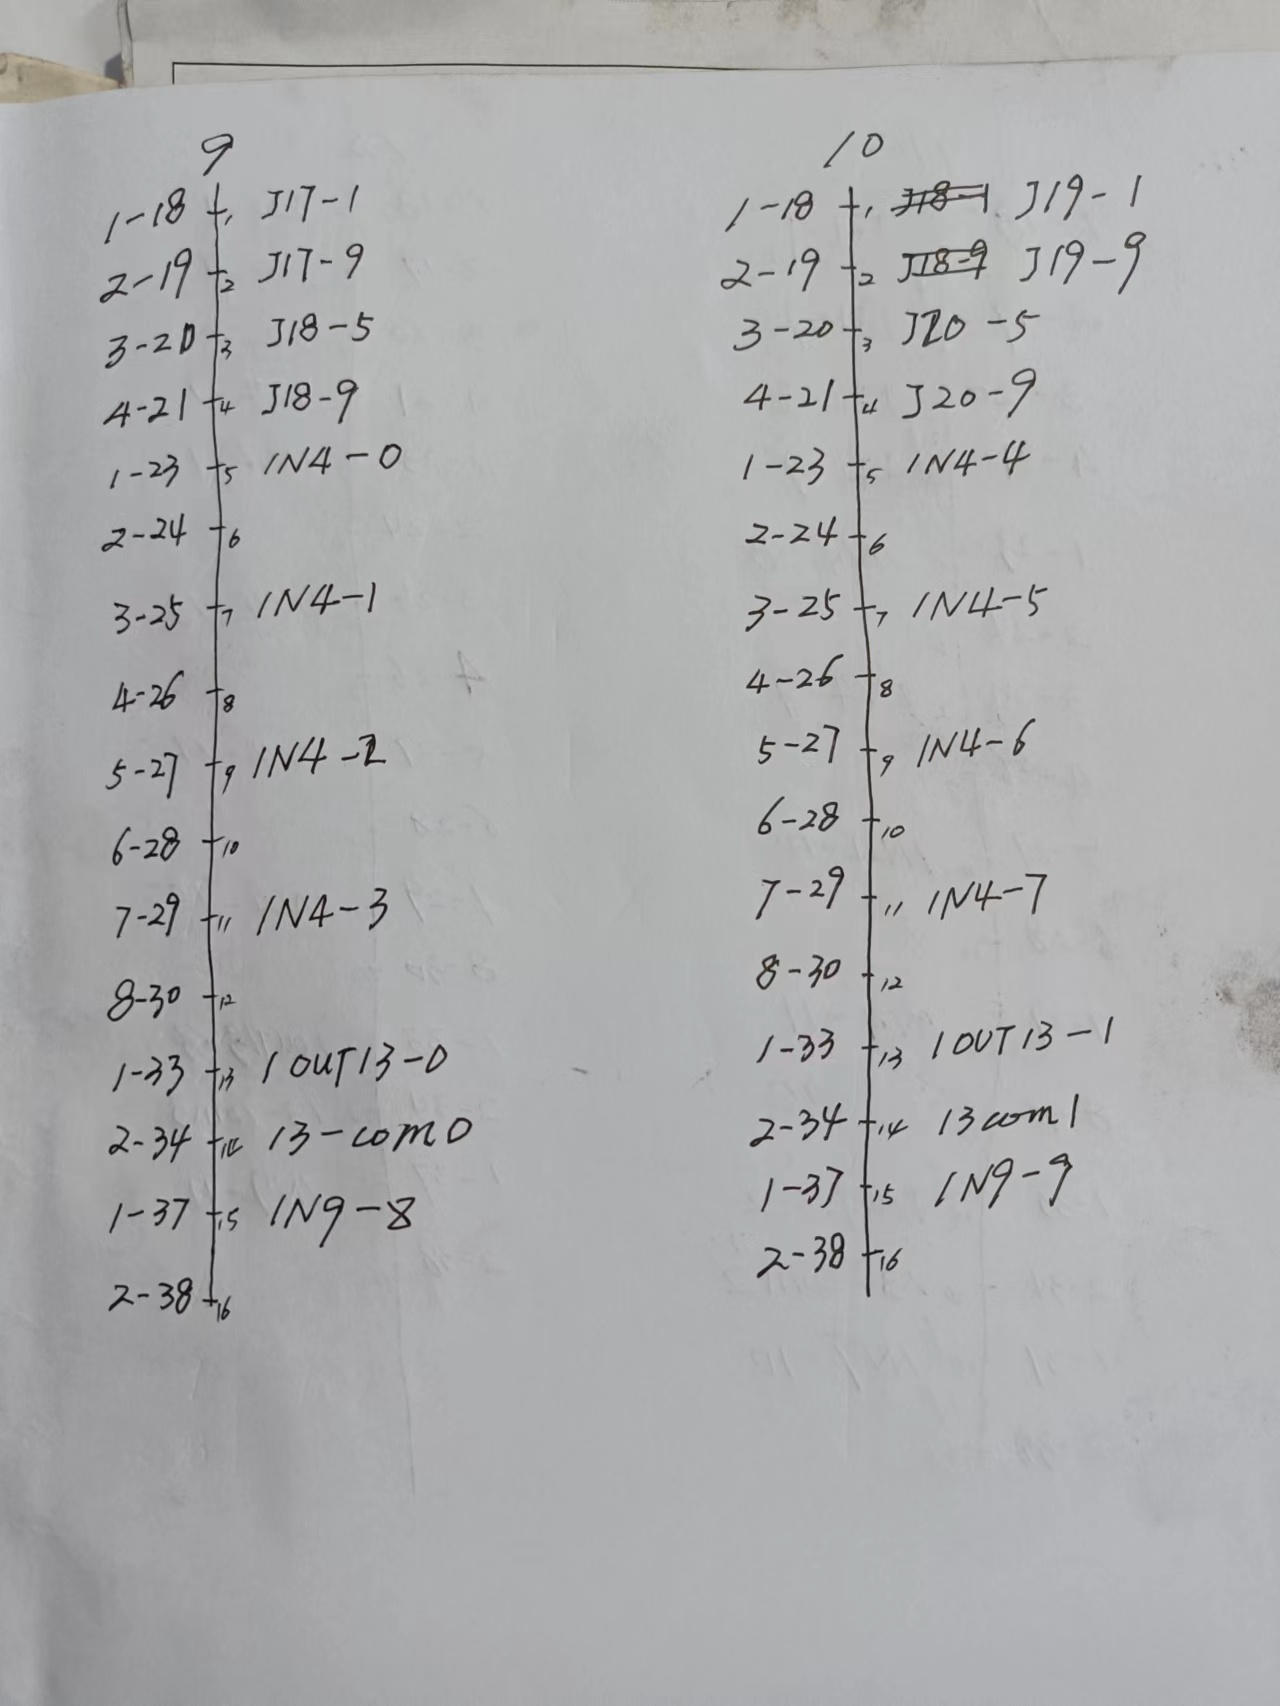 9
1-18 1 J17-1
2-19 2 J17-9
3-20 3 J18-5
4-21 4 J18-9
1-23 5 IN4-0
2-24 6
3-25 7 IN4-1
4-26 8
5-27 9 IN4-2
6-28 10
7-29 11 IN4-3
8-30 12
1-33 13 1OUT13-0
2-34 14 13-com0
1-37 15 IN9-8
2-38 16
10
1-18 1 J18-1 J19-1
2-19 2 J18-9 J19-9
3-20 3 J20-5
4-21 4 J20-9
1-23 5 IN4-4
2-24 6
3-25 7 IN4-5
4-26 8
5-27 9 IN4-6
6-28 10
7-29 11 IN4-7
8-30 12
1-33 13 1OUT13-1
2-34 14 13com1
1-37 15 IN9-9
2-38 16